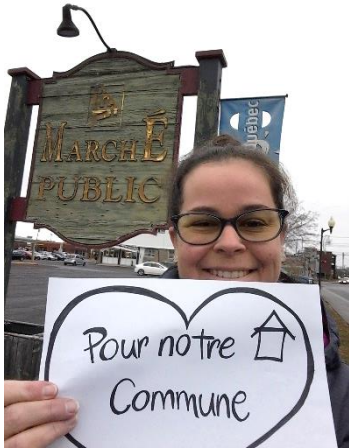 MARCHÉ
PUBLIC
Québec
Pour notre
Commune